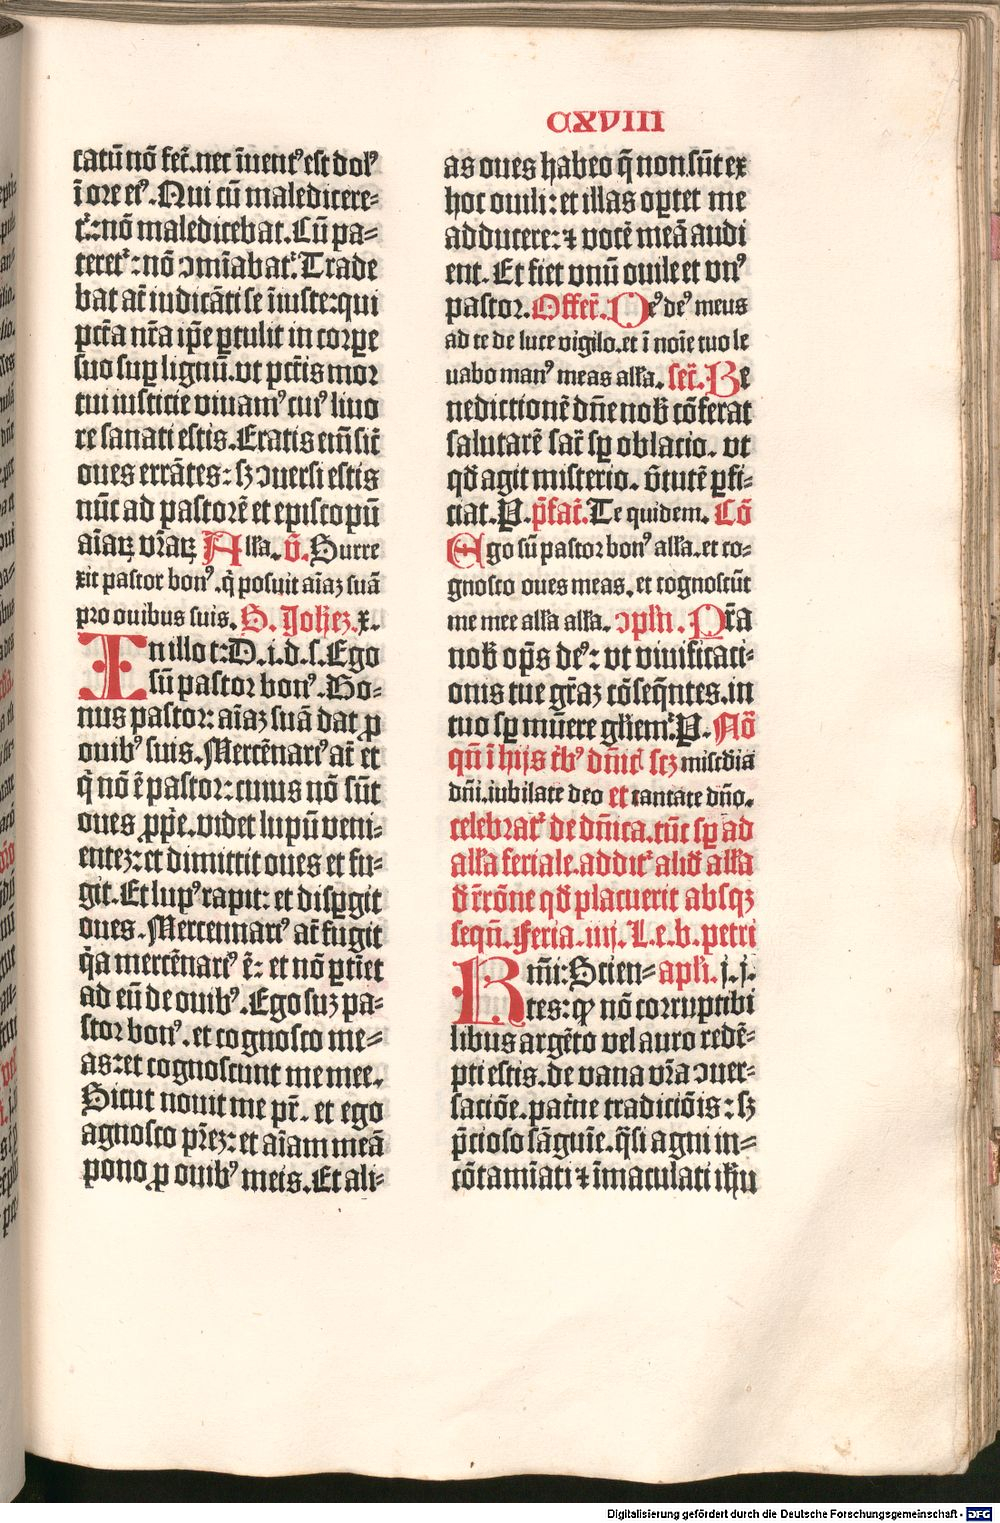 CXVIII
catū nō fec̄. nec īuent⁹ est dol⁹
ī ore ei⁹. Qui cū maledicere-
t᷑: nō maledicebat. Cū pa-
teret᷑: nō ↄmīabat᷑. Trade
bat at̄ iudicāti se īiuste: qui
pctā nrā ip̄e ꝑtulit in corꝑe
suo suꝑ lignū. vt pctīs mor
tui iusticie viuam⁹ cui⁹ liuo
re sanati estis. Eratis em̄ sic̄
oues errātes: sꝫ ↄuersi estis
nūc ad pastorē et episcopū
aīaꝝ vr̄aꝝ Alla. v̄. Surre
xit pastor bon⁹. q̄ posuit aīaz suā
pro ouibus suis. S. Joh̄ez. x.
In illo t: D. i. d. s. Ego
sū pastor bon⁹. Bo-
nus pastor: aīaz suā dat ꝓ
ouib⁹ suis. Mercēnari⁹ at̄ et
q̄ nō ē pastor: cuius nō sūt
oues ꝓp̄e. videt lupū veni-
entez: et dimittit oues et fu-
git. Et lup⁹ rapit: et disꝑgit
oues. Mercennari⁹ at̄ fugit
q̄a mercēnari⁹ ē: et nō ꝑtīet
ad eū de ouib⁹. Ego suz pa-
stor bon⁹. et cognosco me-
as: et cognoscunt me mee.
Sicut nouit me pr̄. et ego
agnosco pr̄ez: et aīam meā
pono ꝓ ouib⁹ meis. Et ali-
as oues habeo q̄ non sūt ex
hoc ouili: et illas oꝑtet me
adducere: ⁊ vocē meā audi
ent. Et fiet vnū ouile et vn⁹
pastor. Offer̄. De⁹ de⁹ meus
ad te de luce vigilo. et ī noīe tuo le
uabo man⁹ meas alla. sec̄. Be
nedictionē dn̄e nob̄ cōferat
salutarē sac̄ sꝑ oblacio. vt
qđ agit misterio. v̄tutē ꝑfi-
ciat. P. p̄fac̄. Te quidem. Cō
Ego sū pastor bon⁹ alla. et co-
gnosco oues meas. et cognoscūt
me mee alla alla. ↄpl̄n. Pr̄a
nob̄ op̄s de⁹: vt viuificaci-
onis tue gr̄az cōseq̄ntes. in
tuo sꝑ mūere gl̄iem᷑. P. Nō
qn̄ ī hijs t̄b⁹ dn̄ic̄ scꝫ misc̄dia
dn̄i. iubilate deo et cantate dn̄o.
celebrat᷑ de dn̄ica. tūc sꝑ ad
alla feriale. addit᷑ aliđ alla
đ r̄rōne qđ placuerit absqꝫ
seqn̄. Feria. iiij. L. e. b. petri
Rm̄i: Scien- apl̄i. j. j.
tes: ꝙ nō corruptibi
libus argēto vel auro redē-
pti estis. de vana vr̄a ↄuer-
saciōe. pat̄ne tradiciōis: sꝫ
p̄cioso sāguīe. q̄si agni in-
cōtamīati ⁊ īmaculati ih̄u
Digitalisierung gefördert durch die Deutsche Forschungsgemeinschaft - DFG